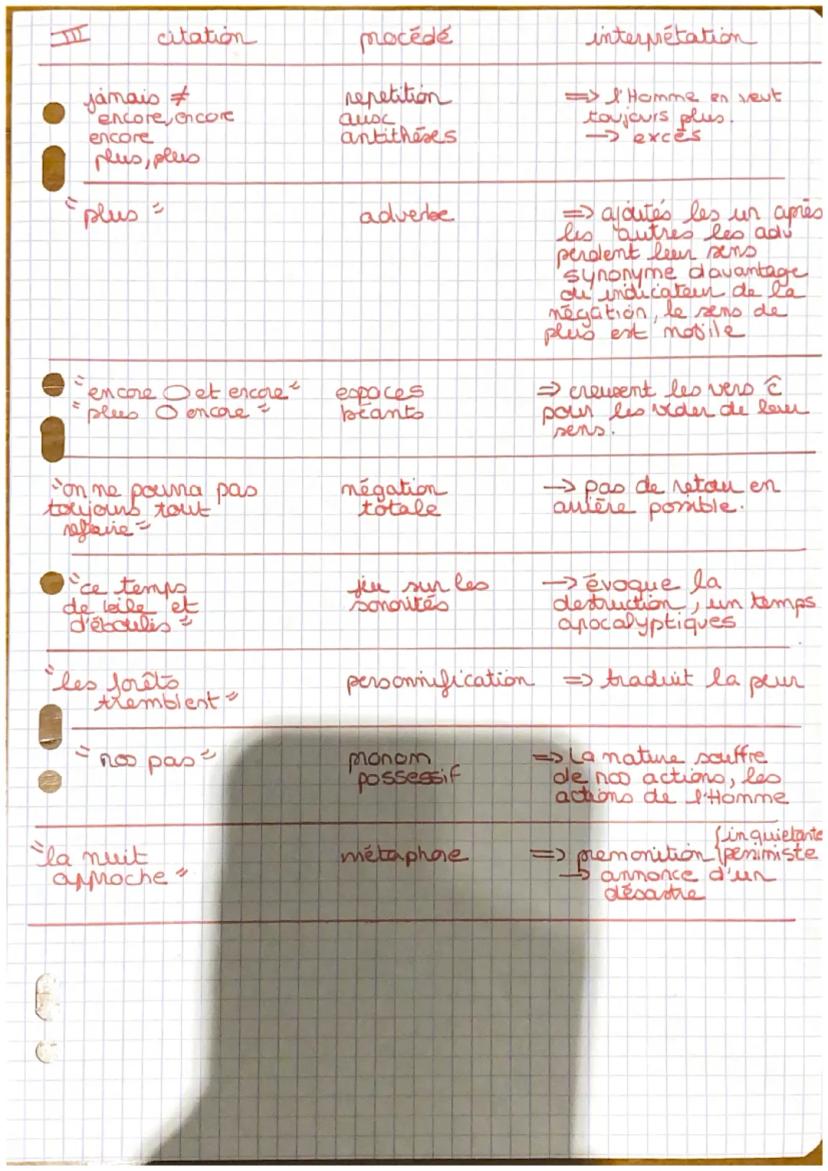 III citation procédé interprétation
jamais ≠ repetition => l'Homme en veut
encore, encore aux toujours plus.
encore antithèses -> excès
plus, plus
"plus" adverbe => ajoutés les un après
les autres les adv
perdent leur sens
synonyme davantage
ou indicateur de la
négation, le sens de
plus est mobile
"encore O et encore" espaces => creusent les vers ĉ
"plus O encore" béants pour les vider de leur
sens.
"on ne pourra pas négation -> pas de retour en
toujours tout totale arière possible.
refaire"
"ce temps jeu sur les -> évoque la
de et sonorités destruction, un temps
d'éboulis" apocalyptiques
"les forêts personnification => traduit la peur
tremblent"
"nos pas" pronom => La nature souffre
possessif de nos actions, les
actions de l'Homme
"la nuit métaphore => premonition { inquietante
approche" pessimiste
-> annonce d'un
désastre